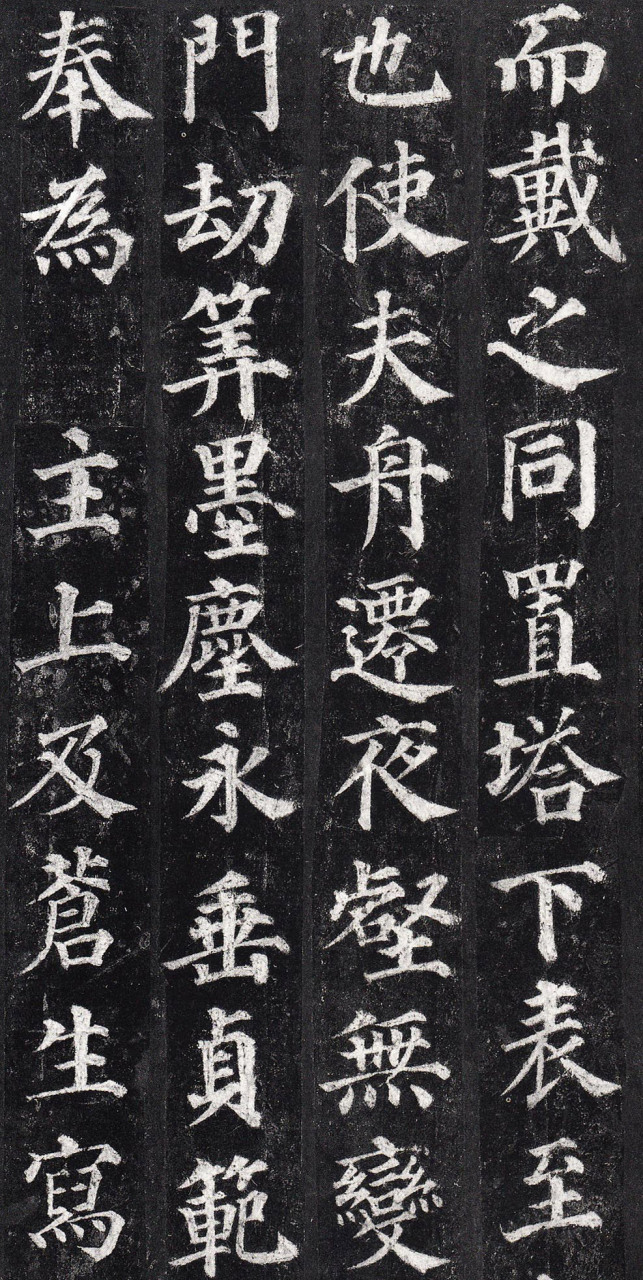 而戴之同置塔下表至
也使夫舟遷夜壑無變
門劫筭墨塵永垂貞範
奉為 主上及蒼生寫